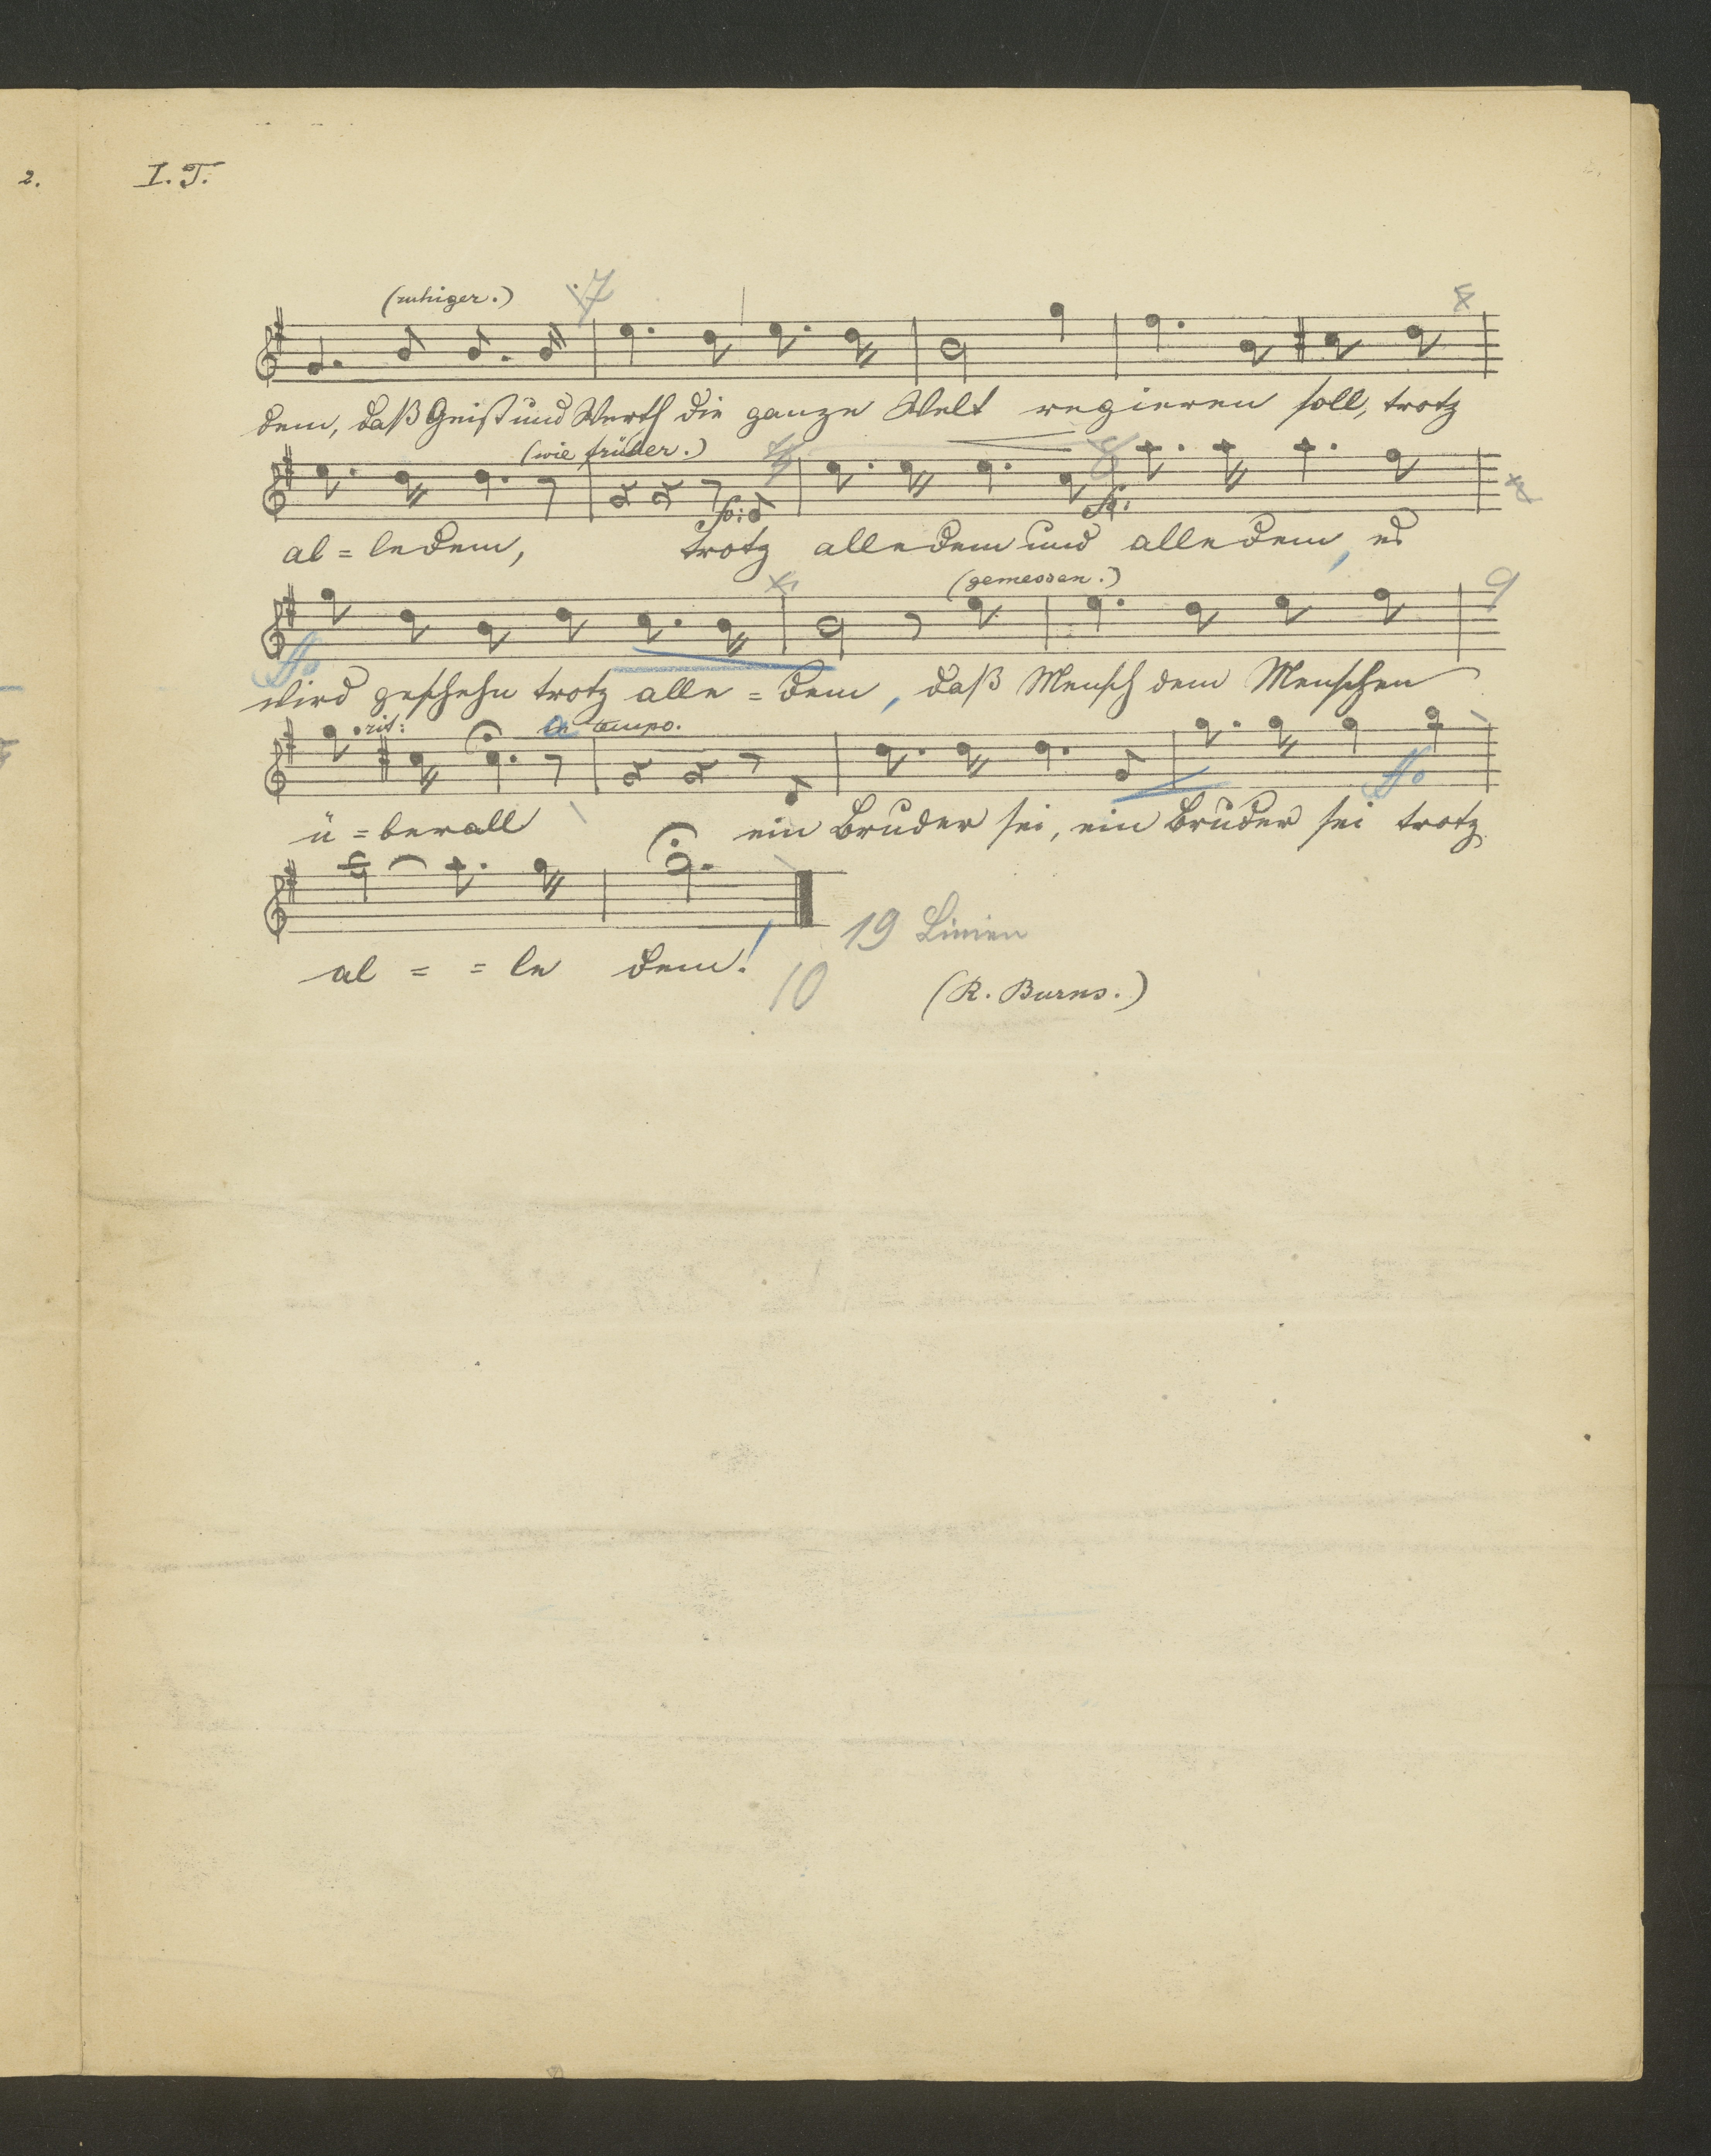 2. I. T.
(ruhiger.) 7
dem, daß Geist und Werth die ganze Welt regieren soll, trotz
(wie früher.)
al=ledem, trotz alledem und alledem, es
(gemessen.) 9
wird geschehn trotz alle=dem, daß Mensch dem Menschen
rit: a tempo.
ü=berall ein Bruder sei, ein Bruder sei trotz
19 Linien
al = = le dem!
10 (R. Burns.)